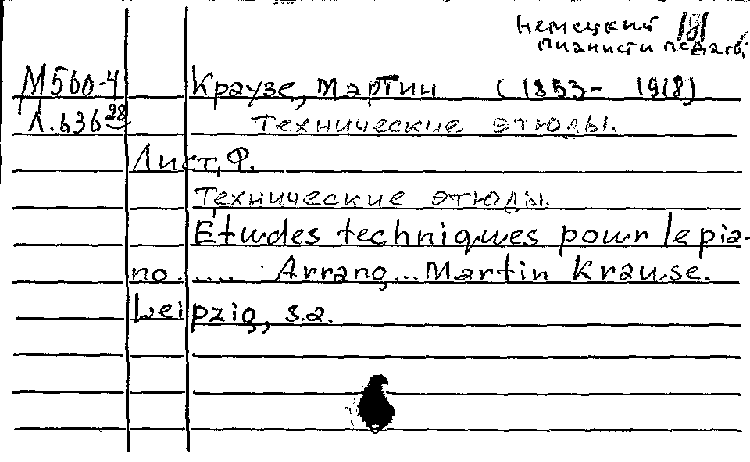 немецкий
пианист и педагог
М560-4 Краузе, Мартин (1853- 1918)
Л.636 28 Технические этюды.
Лист, Ф.
Технические этюды.
Études techniques pour le pia-
no..... Arrang... Martin Krause.
Leipzig, s.a.